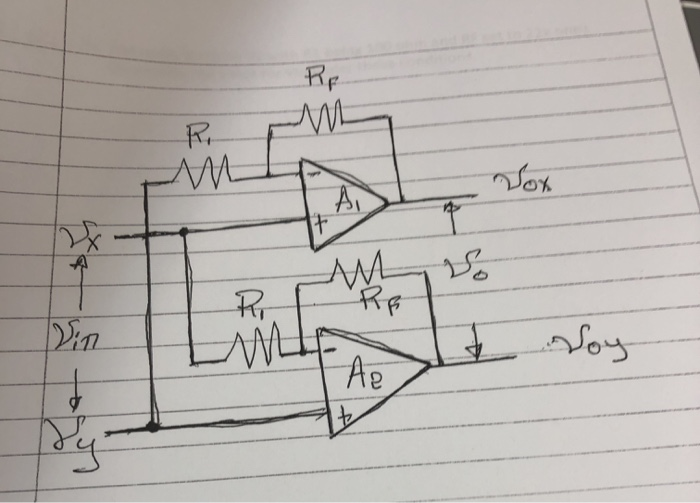 RF
R1
-
A1
+
Vox
Vx
Vo
R1
RF
Vin
-
A2
Voy
+
Vy